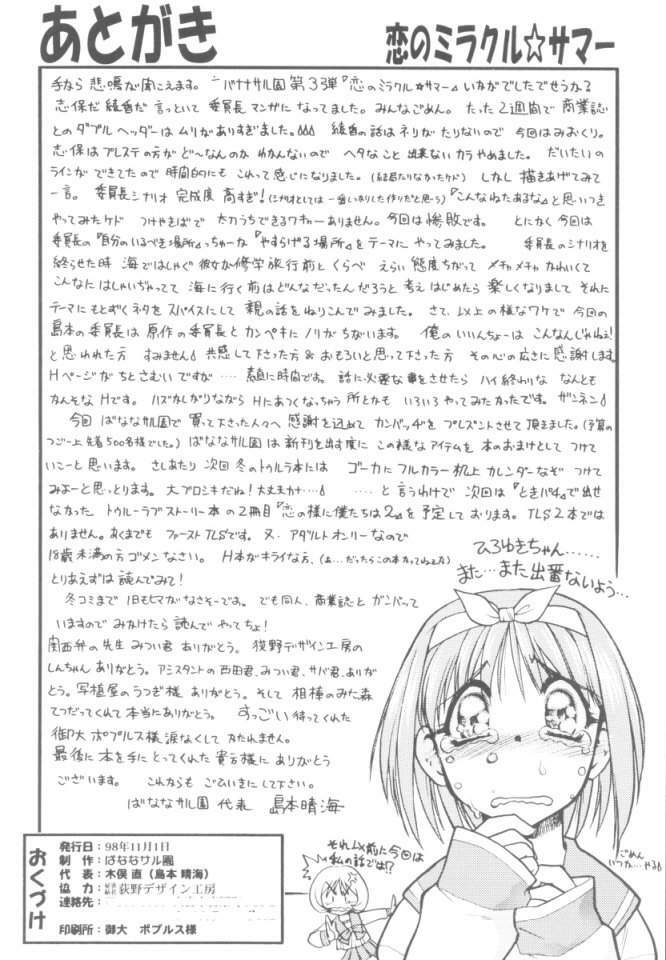 あとがき
恋のミラクル☆サマー
手なら 悲鳴が聞こえます。 ばななサル園 第33弾『恋のミラクル☆サマー』いかがでしたでせうかる
志保だ 綾香だ 言っといて 委員長マンガになってました。みんなごめん。 たった2週間で 商業誌
とのダブルヘッダーは ムリがありすぎました。 綾香の話は ネリが たりないので 今回はみおくり。
志保は プレステの方が ど〜なんのか わかんないので ヘタなこと 出来ない カラ やめました。 だいたいの
ラインが できてたので 時間的にも これって 感じになりました。 しかし 描きあげてみて
一言。 委員長シナリオ 完成度 高すぎ! 『こんなねたあるな』と思いつき
やってみたケド つけやきばで 太刀うちできるワキャーありません。今回は 惨敗です。 とにかく 今回は
委員長の『自分のいるべき場所』っちゅーか『やすらげる場所』をテーマに やってみました。 委員長のシナリオを
終らせた時 海ではしゃぐ 彼女が 修学旅行前と くらべ えらい 態度ちがって メチャメチャ かわいくて
こんなに はしゃいじゃってて 海に行く前は どんなだったんだろうと 考え はじめたら 楽しくなりまして それに
テーマにもとずくネタを スパイスにして 親の話を ねりこんでみました。 さて、以上の様なワケで 今回の
島本の委員長は 原作の委員長と カンペキに ノリが ちがいます。 俺の いいんちょーは こんなんじゃねぇ!
と思われた方 すみません 共感して下さった方& おもろいと思って下さった方 その心の広さに 感謝します。
Hページが ちとさむいですが …… 素直に時間です。 話に必要な 事をさせたら ハイ終わりな なんとも
かんそな Hです。 ハズかしがりながら Hにあつくなっちゃう 所とかも いろいろ やってみたかったです。 ザンネン
今回 ばななサル園で 買って下さった人々へ 感謝を込めて カンバッヂを プレゼントさせて 頂きました。(予算の
つごー上 先着500名様でした。) ばななサル園は 新刊を出す度に この様なアイテムを 本のおまけとして つけて
いこーと思います。 さしあたり 次回 冬のトゥルラブ本には ゴーカに フルカラー 机上 カレンダーなぞ つけて
みよーと思っとります。 大ブロシキだね! 大丈夫か… …… と言うわけで 次回は『ときパチ』で出せ
なかった トゥルーラブストーリー本 の2冊目『恋の様に僕たちは2』を 予定して おります。 TLS2本では
ありません。 あくまでも ファーストTLSです。 又、アダルトオンリーなので
18歳未満の方 ゴメンなさい。 H本がキライな方、
とりあえずは 読んでみて!
冬コミまで 1日もヒマがなさそーです。 でも同人、商業誌と ガンバって
いますので みかけたら 読んで やってちょ!
関西弁の先生 みつい君 ありがとう。 荻野デザイン工房の
しんちゃん ありがとう。 アシスタントの 西田君、みつい君、サバ君、ありが
とう。 写植屋の うつぎ様 ありがとう。 そして 相棒の みた森
てつだってくれて 本当にありがとう。 すっごい 待ってくれた
御大 ポプルス様 涙なくして かたれません。
最後に 本を手に とってくれた 貴方様に ありがとう
ございます。 これからも ごひいきに して下さい。
ばななサル園 代表 島本晴海
ひろゆきちゃん……
また…また出番ないよう…
それ以前に今回は
私の話では!?
ごめん
いつか…やる
おくづけ
発行日:98年11月1日
制 作:ばななサル園
代 表:木俣 直(島本 晴海)
協 力:荻野デザイン工房
連絡先:
印刷所:御大 ポプルス様